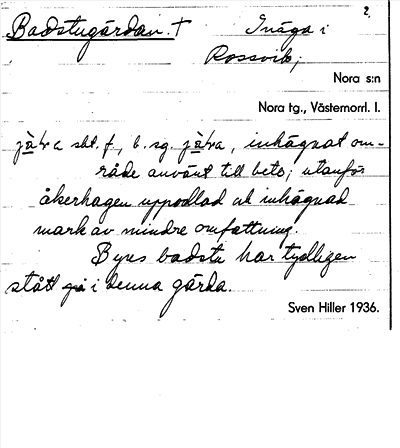 2.
Badstugärdan. † Inäga i
Rossvik;
Nora s:n
Nora tg., Västernorrl. l.
sbt. f., b. sg. inhägnat om-
råde använt till bete; utanför
åkerhagen uppodlad och inhägnad
mark av mindre omfattning.
Byns badstu har tydligen
stått i denna gärda.
Sven Hiller 1936.